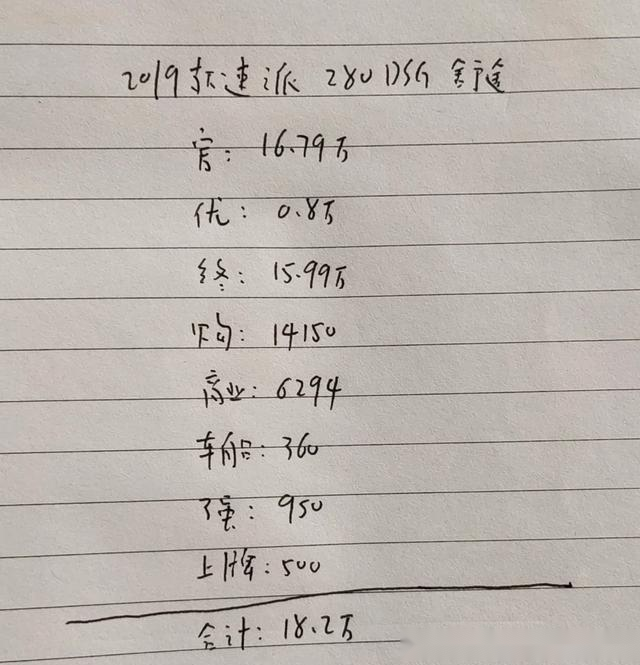 2019款速派 280 DSG 舒适
官: 16.79万
优: 0.8万
终: 15.99万
购: 14150
商业: 6294
车船: 360
强: 950
上牌: 500
合计: 18.2万